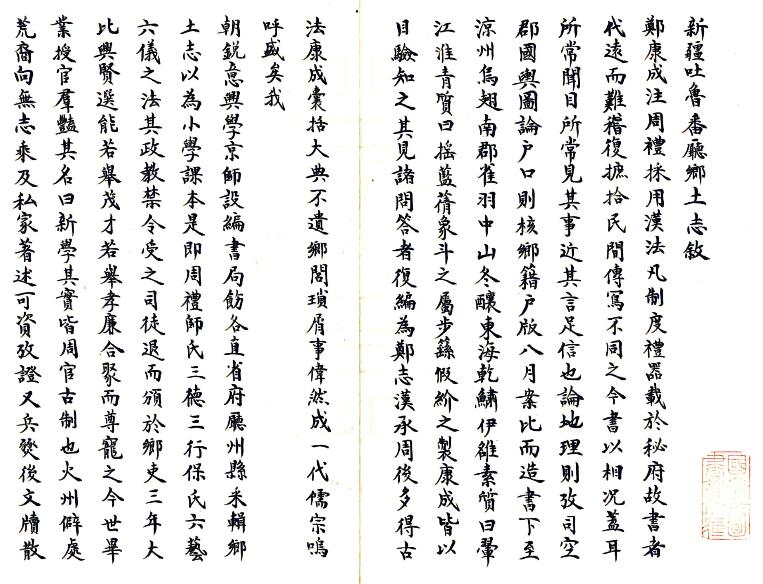 新疆吐魯番廳鄉土志敘
鄭康成注周禮採用漢法凡制度禮器載於秘府故書者
代遠而難稽復摭拾民間傳寫不同之今書以相況蓋耳
所常聞目所常見其事近其言足信也論地理則攷司空
郡國輿圖論戶口則核鄉籍戶版八月案比而造書下至
涼州烏翅南郡雀羽中山冬釀東海乾鱐伊雒素質曰翬
江淮青質曰搖藍蒨象斗之屬步繇假紒之製康成皆以
目驗知之其見諸問答者復編為鄭志漢承周後多得古
法康成囊括大典不遺鄉閭瑣屑事偉然成一代儒宗嗚
呼盛矣我
朝銳意興學京師設編書局飭各直省府廳州縣采輯鄉
土志以為小學課本是即周禮師氏三德三行保氏六藝
六儀之法其政教禁令受之司徒退而頒於鄉吏三年大
比興賢選能若舉茂才若舉孝廉合聚而尊寵之今世畢
業授官羣豔其名曰新學其實皆周官古制也火州僻處
荒裔向無志乘及私家著述可資攷證又兵燹後文牘散